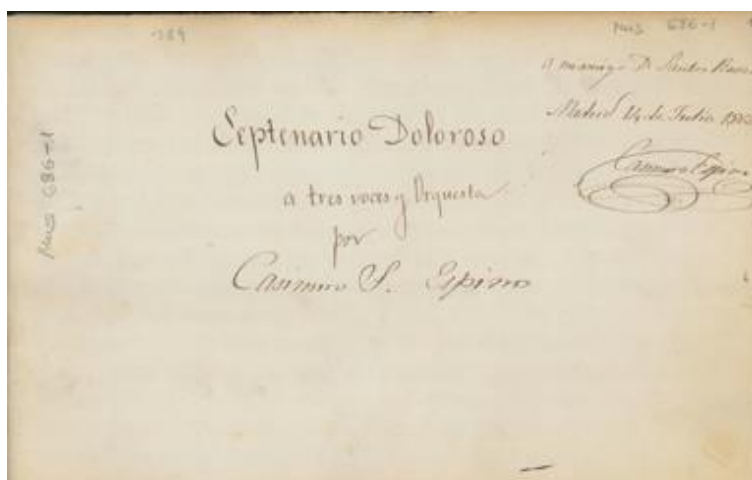 789
Mus 686-1
A mi amigo D. Santos
Madrid 14 de Julio
Casimiro Espino
Septenario Doloroso
a tres voces y Orquesta
por
Casimiro S. Espino
Mus 686-1